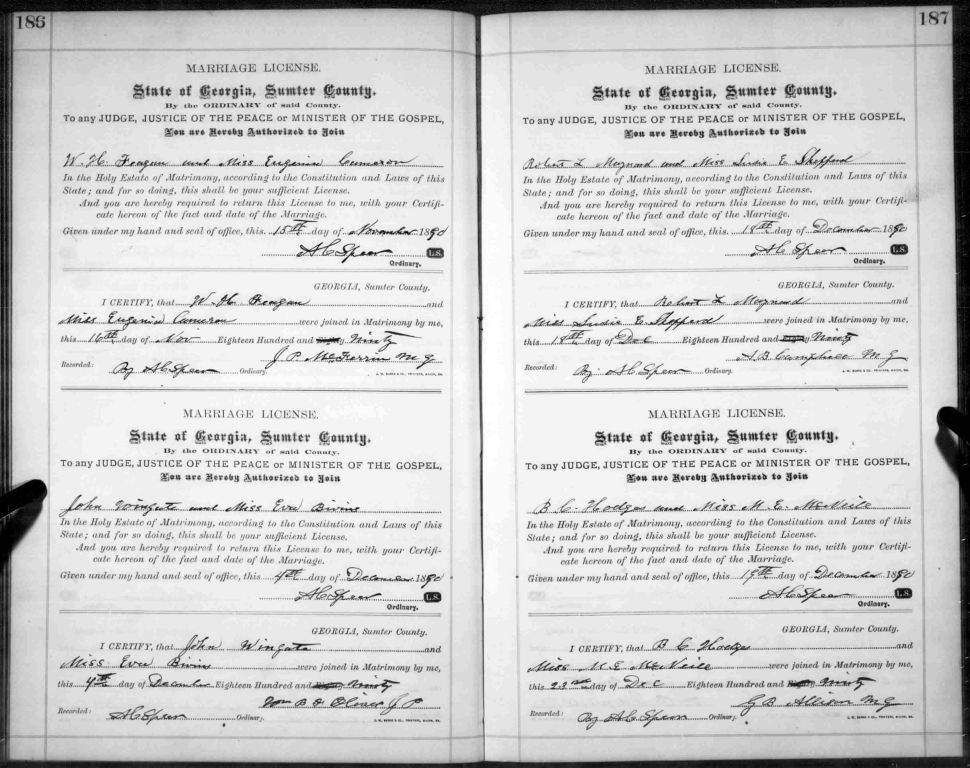 186
MARRIAGE LICENSE.
State of Georgia, Sumter County.
By the ORDINARY of said County.
To any JUDGE, JUSTICE OF THE PEACE or MINISTER OF THE GOSPEL,
You are Hereby Authorized to Join
W. H. Feagan and Miss Eugenia Cameron
In the Holy Estate of Matrimony, according to the Constitution and Laws of this
State; and for so doing, this shall be your sufficient License.
And you are hereby required to return this License to me, with your Certifi-
cate hereon of the fact and date of the Marriage.
Given under my hand and seal of office, this 15th day of November 1890
A C Speer L.S.
Ordinary.
GEORGIA, Sumter County.
I CERTIFY, that W. H. Feagan and
Miss Eugenia Cameron were joined in Matrimony by me,
this 16th day of Nov Eighteen Hundred and Eighty Ninety
J. P. McFerrin M G
Recorded: By A C Speer Ordinary.
J. W. BURKE & CO., PRINTERS, MACON, GA.
MARRIAGE LICENSE.
State of Georgia, Sumter County.
By the ORDINARY of said County.
To any JUDGE, JUSTICE OF THE PEACE or MINISTER OF THE GOSPEL,
You are Hereby Authorized to Join
John Wingate and Miss Eva Bivins
In the Holy Estate of Matrimony, according to the Constitution and Laws of this
State; and for so doing, this shall be your sufficient License.
And you are hereby required to return this License to me, with your Certifi-
cate hereon of the fact and date of the Marriage.
Given under my hand and seal of office, this 4th day of December 1890
A C Speer L.S.
Ordinary.
GEORGIA, Sumter County.
I CERTIFY, that John Wingate and
Miss Eva Bivins were joined in Matrimony by me,
this 4th day of December Eighteen Hundred and Eighty Ninety
Wm B F Oliver J P
Recorded: A C Speer Ordinary.
J. W. BURKE & CO., PRINTERS, MACON, GA.
187
MARRIAGE LICENSE.
State of Georgia, Sumter County.
By the ORDINARY of said County.
To any JUDGE, JUSTICE OF THE PEACE or MINISTER OF THE GOSPEL,
You are Hereby Authorized to Join
Robert L Maynard and Miss Sudie E Sheppard
In the Holy Estate of Matrimony, according to the Constitution and Laws of this
State; and for so doing, this shall be your sufficient License.
And you are hereby required to return this License to me, with your Certifi-
cate hereon of the fact and date of the Marriage.
Given under my hand and seal of office, this 18th day of December 1890
A C Speer L.S.
Ordinary.
GEORGIA, Sumter County.
I CERTIFY, that Robert L Maynard and
Miss Sudie E Sheppard were joined in Matrimony by me,
this 18th day of Dec Eighteen Hundred and Eighty Ninety
A. B. Campbell M G
Recorded: By A C Speer Ordinary.
J. W. BURKE & CO., PRINTERS, MACON, GA.
MARRIAGE LICENSE.
State of Georgia, Sumter County.
By the ORDINARY of said County.
To any JUDGE, JUSTICE OF THE PEACE or MINISTER OF THE GOSPEL,
You are Hereby Authorized to Join
B. C. Hodges and Miss M. E. McNeill
In the Holy Estate of Matrimony, according to the Constitution and Laws of this
State; and for so doing, this shall be your sufficient License.
And you are hereby required to return this License to me, with your Certifi-
cate hereon of the fact and date of the Marriage.
Given under my hand and seal of office, this 19th day of December 1890
A C Speer L.S.
Ordinary.
GEORGIA, Sumter County.
I CERTIFY, that B C Hodges and
Miss M. E. McNeill were joined in Matrimony by me,
this 23rd day of Dec Eighteen Hundred and Eighty Ninety
G B Allison M G
Recorded: By A C Speer Ordinary.
J. W. BURKE & CO., PRINTERS, MACON, GA.